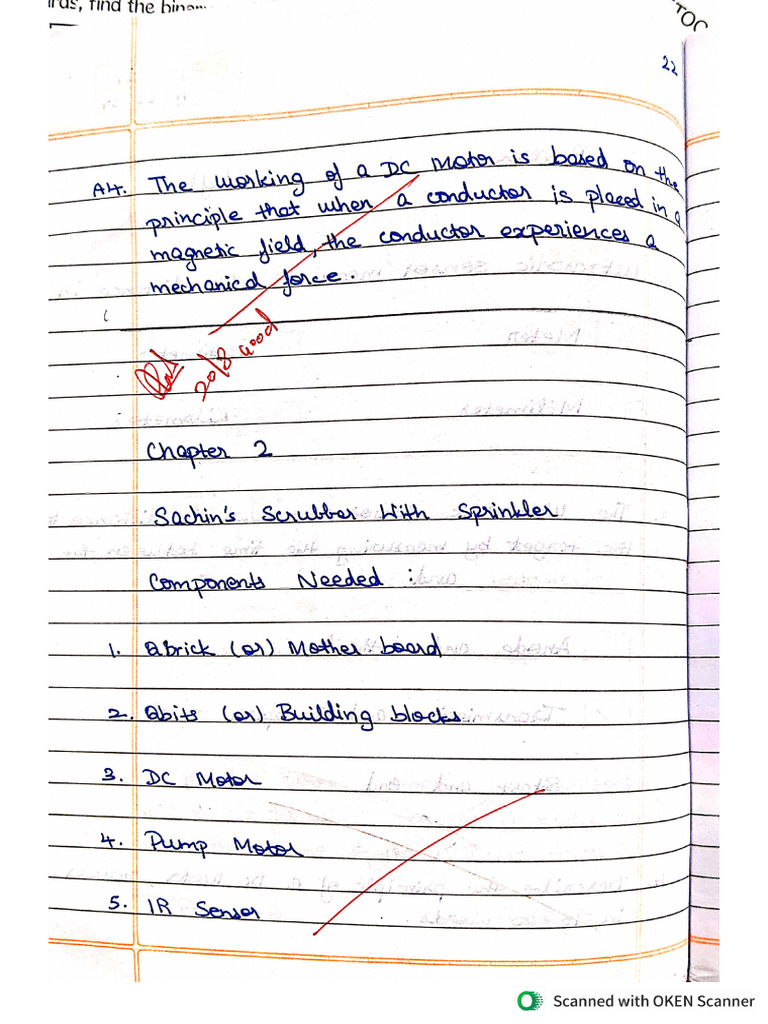 find the
22
A4. The working of a DC Motor is based on the
principle that when a conductor is placed in a
magnetic field, the conductor experiences a
mechanical force.
20/8 Good
Chapter 2
Sachin's Scrubber With Sprinkler
Components Needed :
1. Qbrick (or) Mother board
2. Qbits (or) Building blocks
3. DC Motor
4. Pump Motor
5. IR Sensor
Scanned with OKEN Scanner